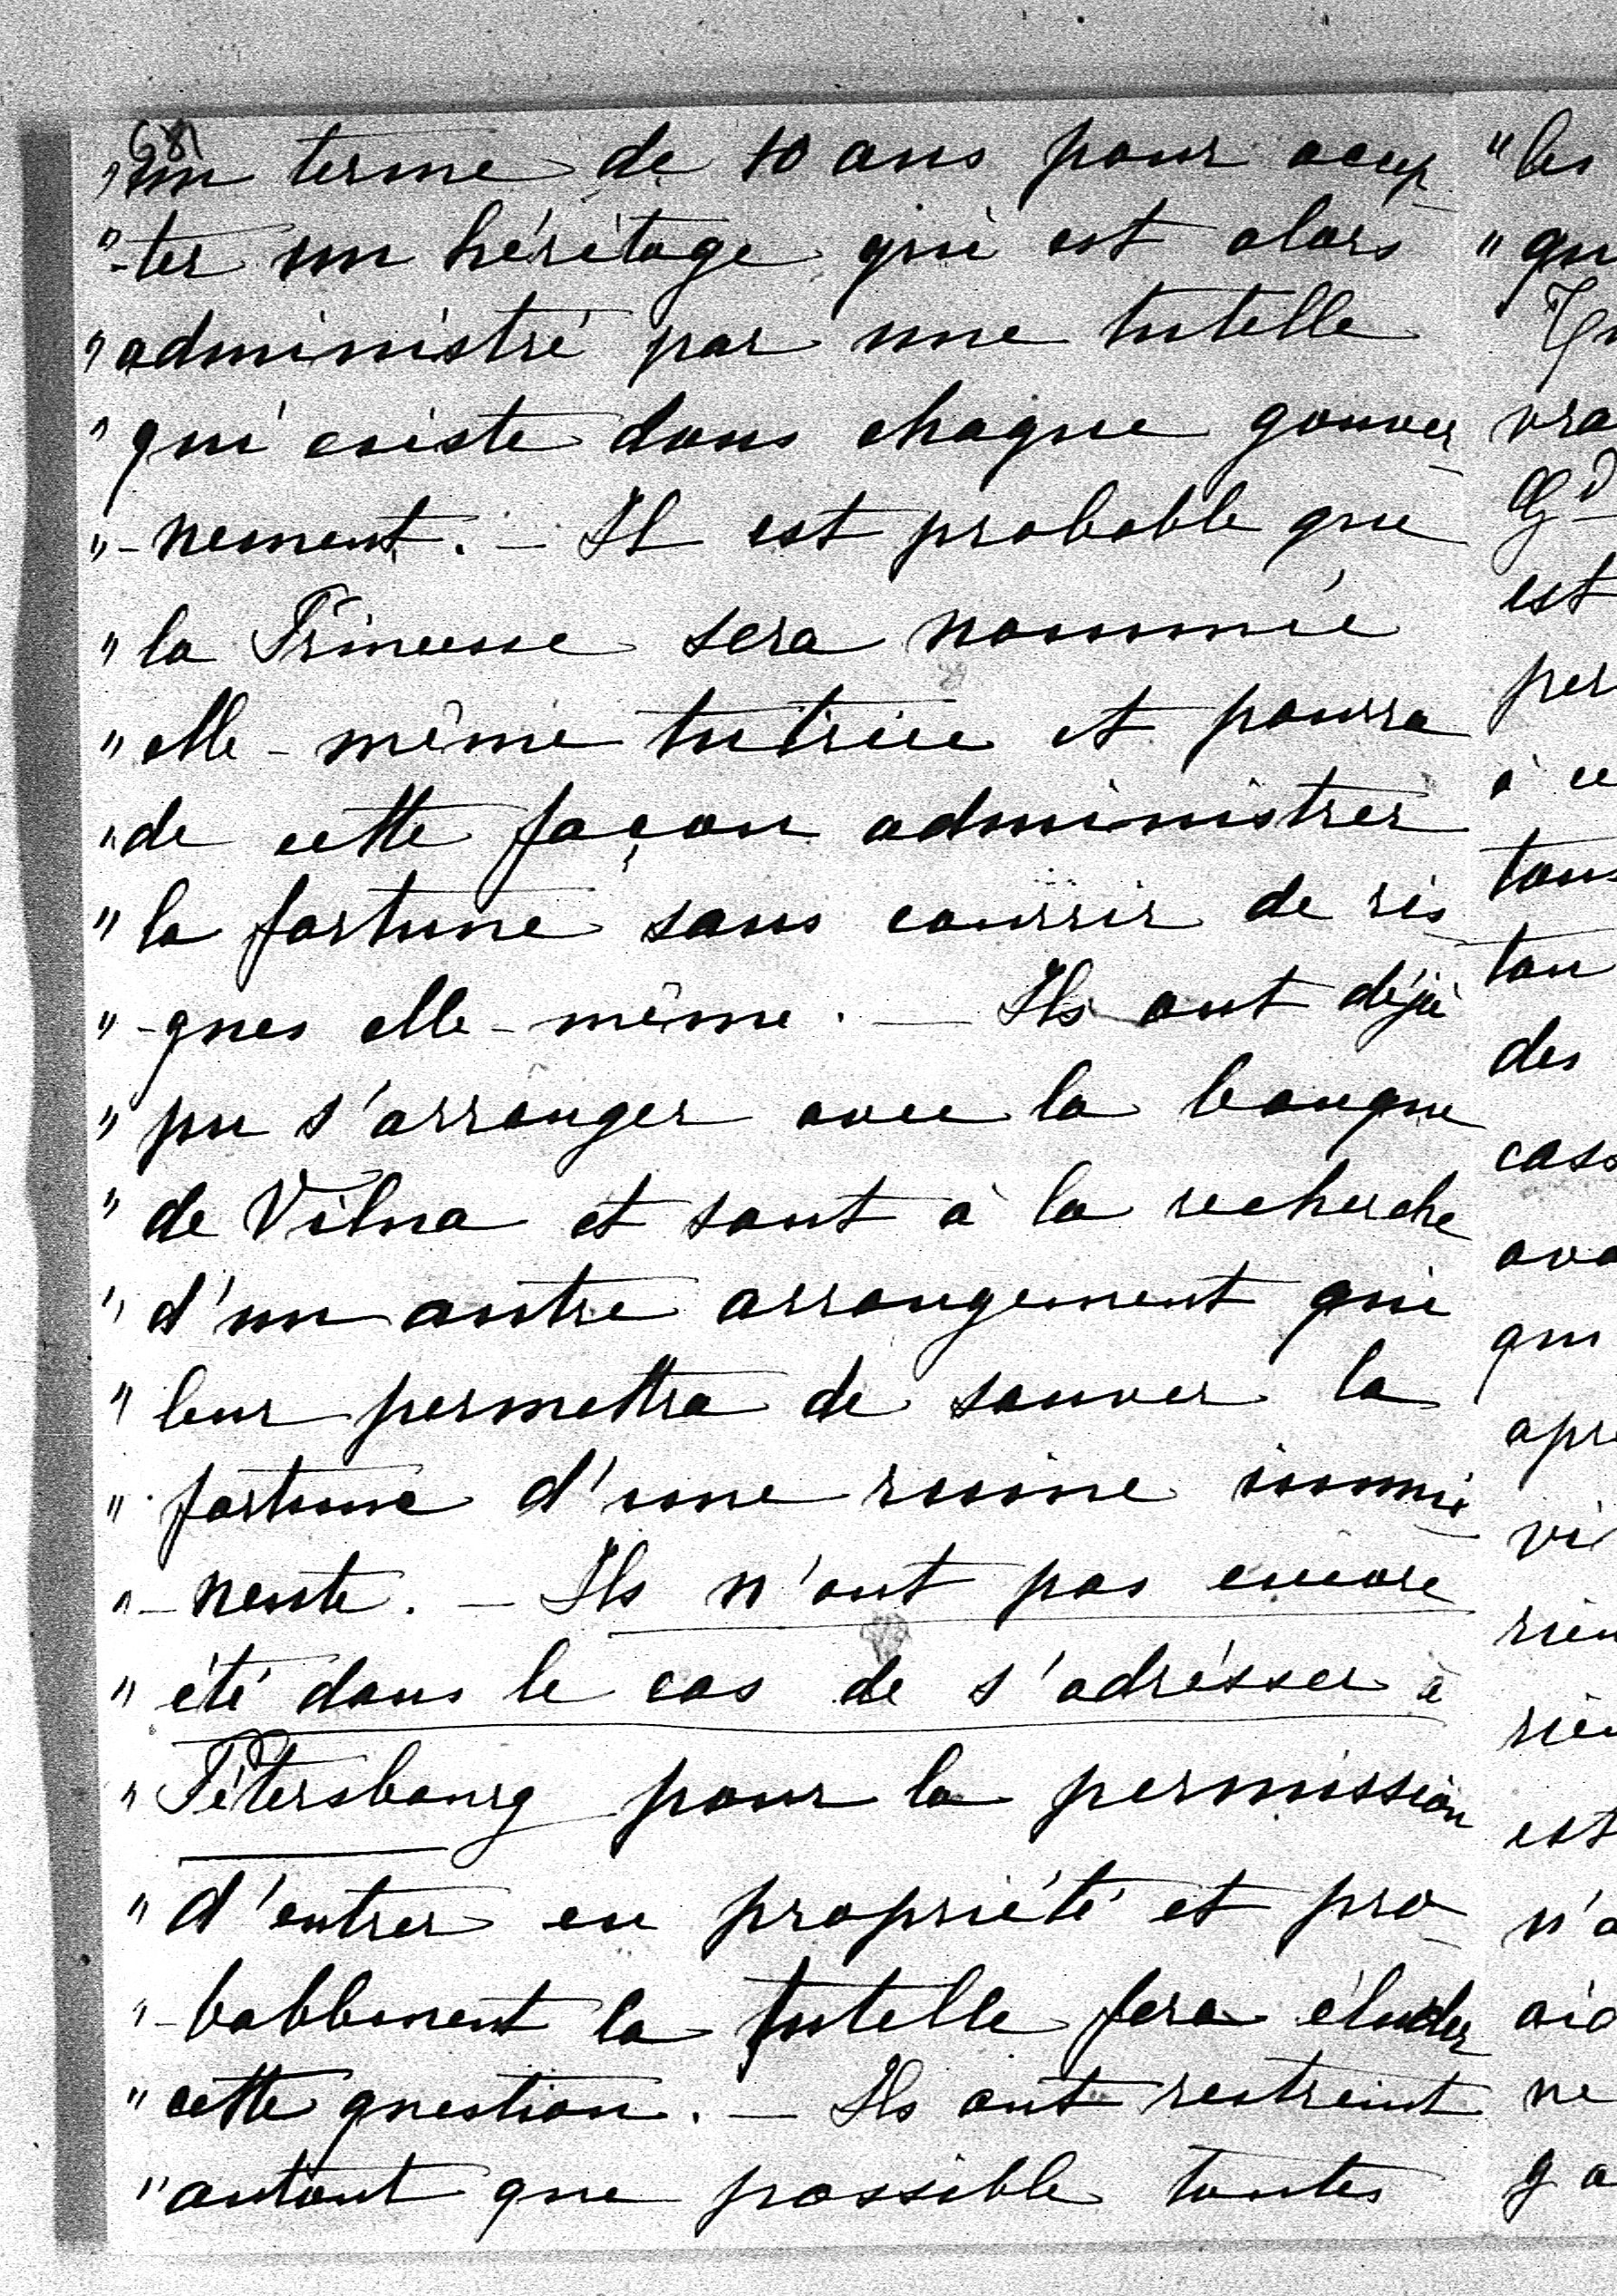 681
"un terme de 10 ans pour accep
"-ter un héritage qui est alors
"administré par une tutelle
"qui existe dans chaque gouver
"-nement. – Il est probable que
"la Princesse sera nommée
"elle-même tutrice et pourra
"de cette façon administrer
"la fortune sans courrir de ris
"-ques elle-même. — Ils ont déjà
"pu s'arranger avec la banque
"de Vilna et sont à la recherche
"d'un autre arrangement qui
"leur permettra de sauver la
"fortune d'une ruine immi
"-nente. – Ils n'ont pas encore
"été dans le cas de s'adrésser à
"Pétersbourg pour la permission
"d'entrer en propriété et pro
"-bablement la tutelle fera éluder
"cette question. – Ils ont restreint
"autant que possible toutes
"les
"qu
vra
Gd
est
per
à ce
tous
tan
des
cass
ava
qui
apr
vi
rien
rien
est
n'a
aid
ne
y a